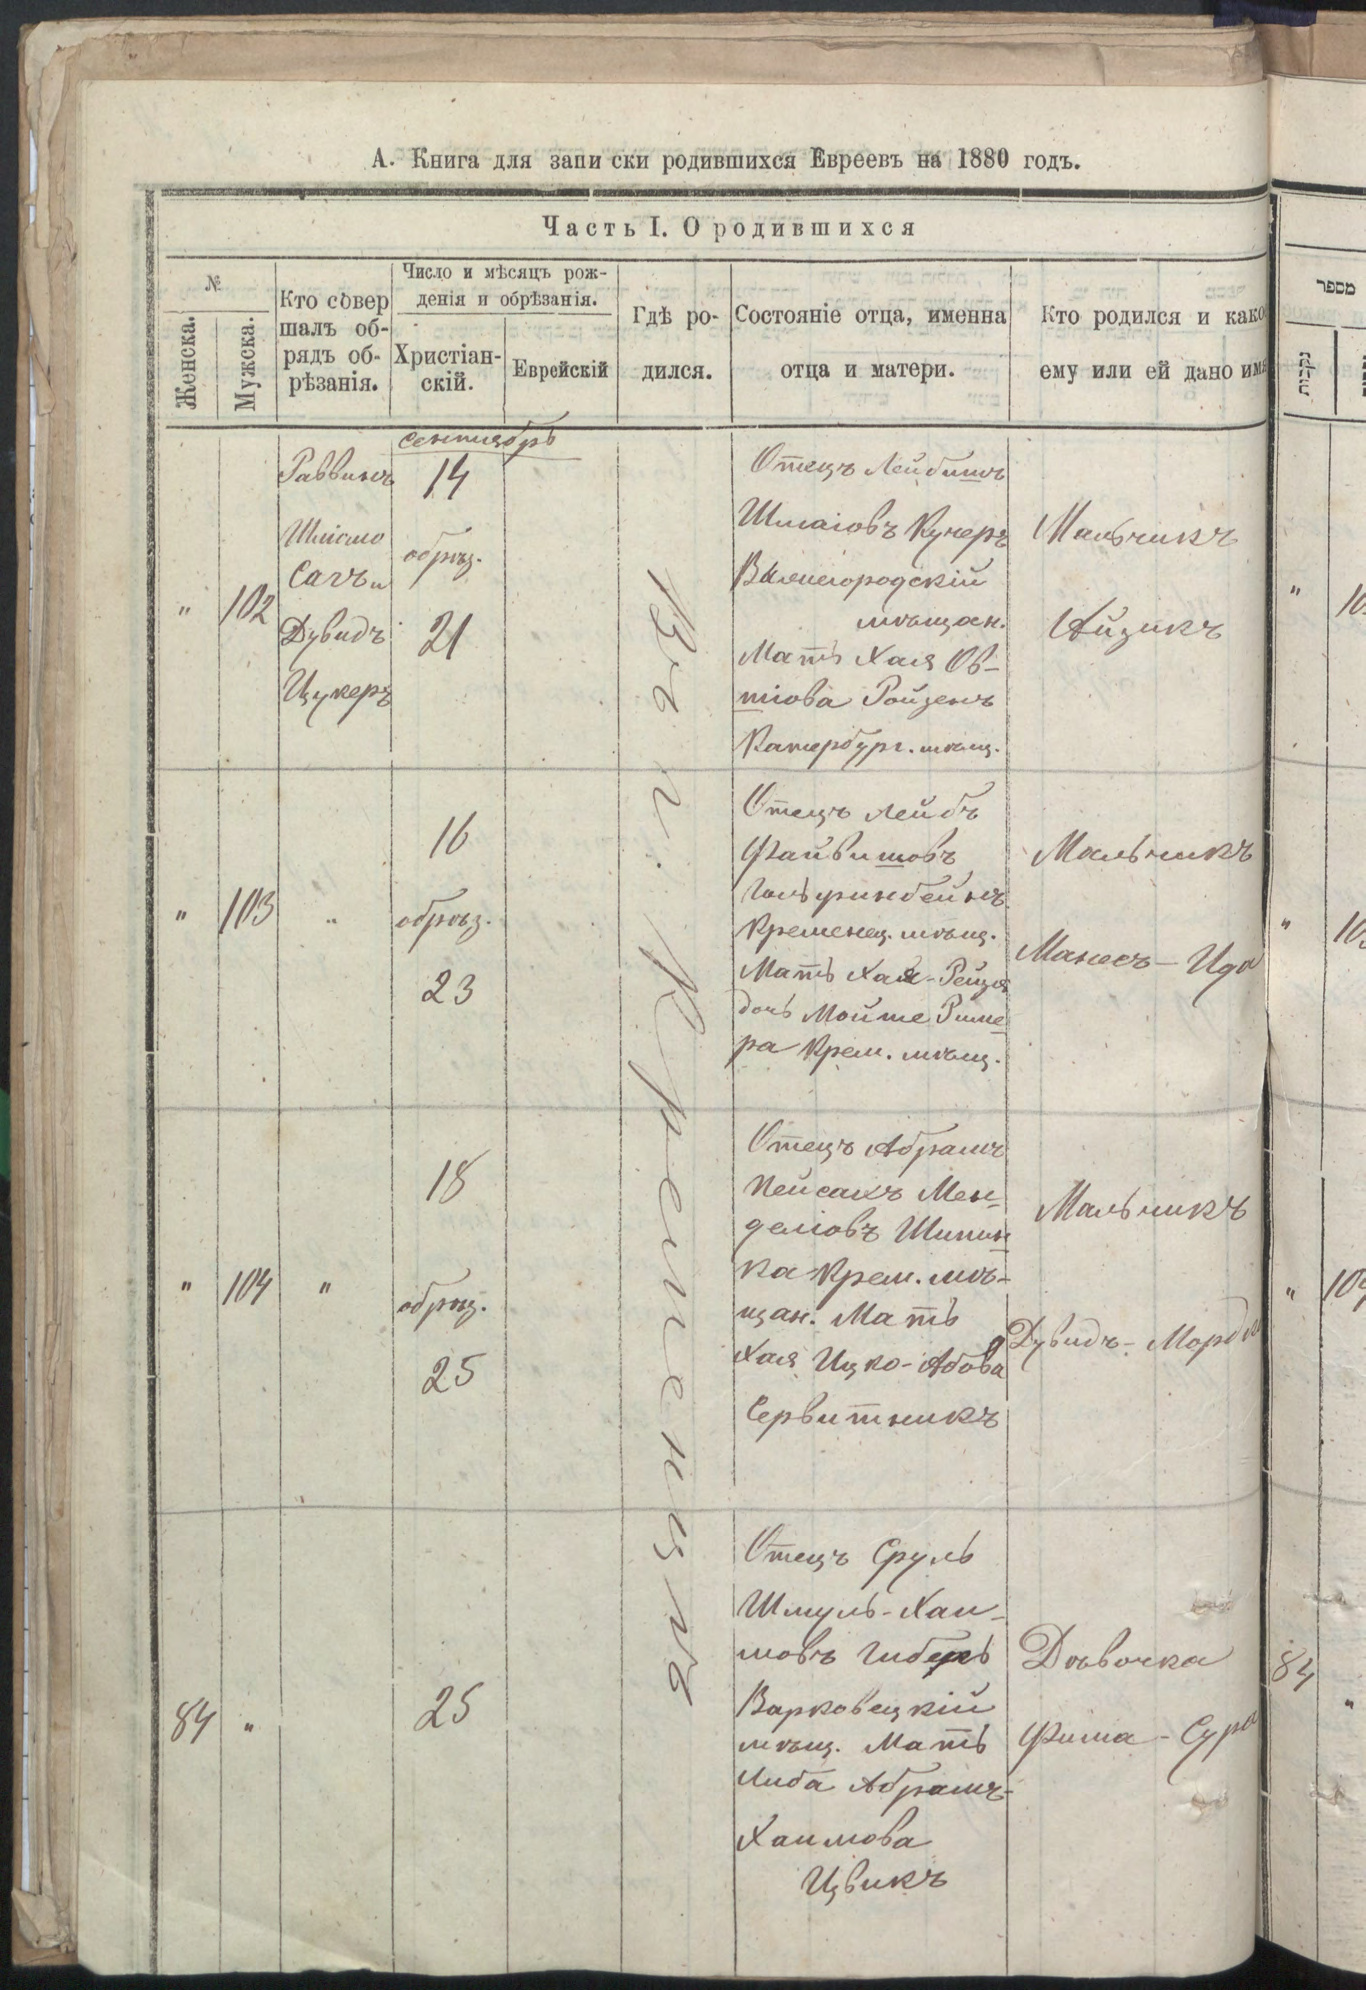 А. Книга для запи ски родившихся Евреевъ на 1880 годъ.
Часть I. О родившихся
№
Женска.
Мужска.
Кто совер
шалъ об-
рядъ об-
рѣзанія.
Число и мѣсяцъ рож-
денія и обрѣзанія.
Христіан-
скій.
Еврейскій
Гдѣ ро-
дился.
Состояніе отца, именна
отца и матери.
Кто родился и како
ему или ей дано имя
Сентябрь
"
102
Раввинъ
Шлiомо
Сачъ и
Дувидъ
Цукеръ
14
обрѣз.
21
Въ г. Кременцѣ
Отецъ Лейбишъ
Шмаіовъ Кучеръ
Вышегородскій
мѣщан.
Мать Хая Ов-
шіова Ройзенъ
Катербург. мѣщ.
Мальчикъ
Айзикъ
"
103
"
16
обрѣз.
23
Отецъ Лейбъ
Файвишовъ
Гальфинбейнъ
Кременец. мѣщ.
Мать Хая-Рейзя
дочь Мойше Риме
ра Крем. мѣщ.
Мальчикъ
Манесъ-Ида
"
104
"
18
обрѣз.
25
Отецъ Абрамъ
Пейсахъ Мен-
деліовъ Шпин
ка Крем. мѣ-
щан. Мать
Хая Ицко-Абова
Сервитникъ
Мальчикъ
Дувидъ-Мордко
84
"
25
Отецъ Сруль
Шмуль-Хаи-
мовъ
Варковецкій
мѣщ. Мать
Либа Абрамъ-
Хаимова
Цвикъ
Дѣвочка
Фима-Сура
מספר
נקבות
"
"
"
84
"